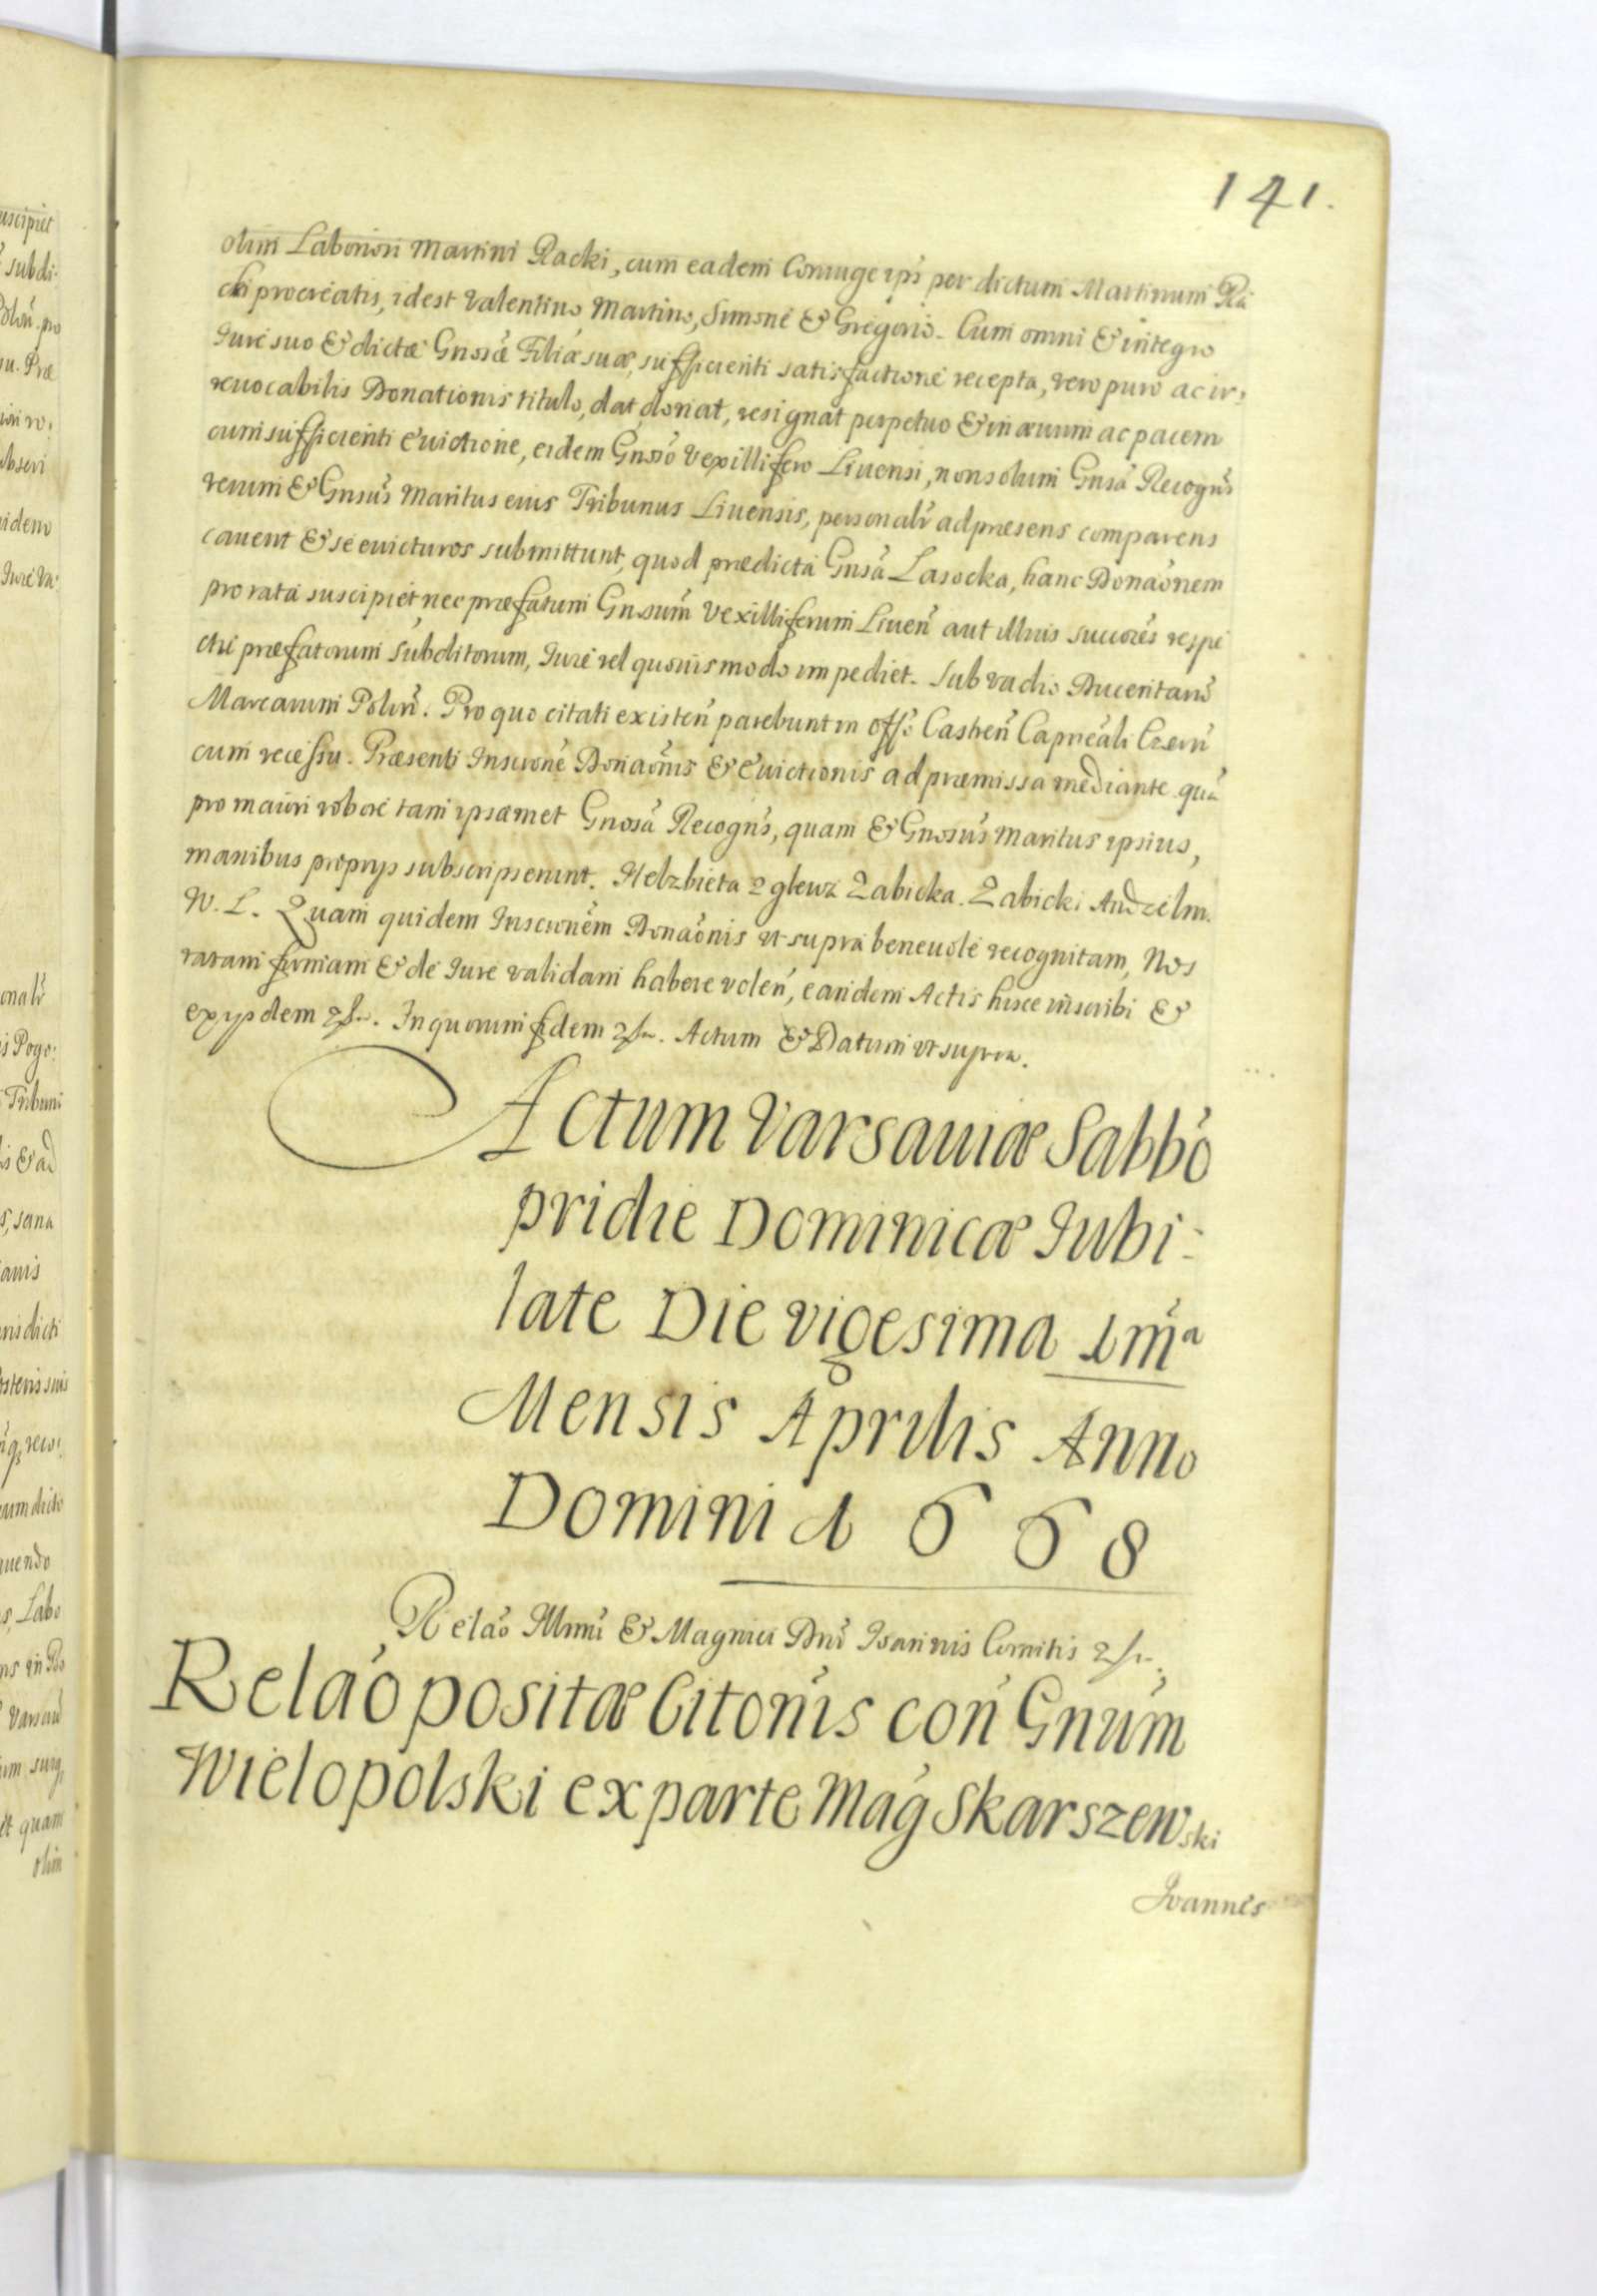 141.
olim Laboriosi Martini Racki, cum eadem Coniuge ipsi per dictum Martinum Ra
cki procreatis, idest Valentino Martino, Simone & Gregorio. Cum omni & integro
Iure suo & dictæ Gnosæ Filiæ suæ, sufficienti satisfactione recepta, vero puro ac ir:
reuocabilis Donationis titulo, dat donat, resignat perpetuo & in æuum ac pacem
cum sufficienti euictione, eidem Gnoso Vexillifero Liuensi, non solum Gnsa Recogns
verum & Gnsus Maritus eius Tribunus Liuensis, personalr ad præsens comparens
cauent & se euicturos submittunt, quod prædicta Gnsa Lasocka, hanc Donaonem
pro rata suscipiet nec præfatum Gnsum Vexilliferum Liuen aut illius succores respe
ctu præfatorum subditorum, Iure vel quouis modo impediet. Sub vadio Ducentaru
Marcarum Polon. Pro quo citati existen parebunt in Offo Castren Capneali Czern
cum recessu. Præsenti Inscrone Donaonis & Euictionis ad præmissa mediante qua
pro maiori robore tam ipsamet Gnosa Recogns, quam & Gnosus Maritus ipsius,
manibus proprys subscripserunt. Helzbieta z glewz Zabicka. Zabicki Andzelm.
W. L. Quam quidem Inscronem Donaonis vt supra beneuole recognitam, Nos
ratam firmam & de Iure validam habere volen, eandem Actis hisce inscribi &
ex ijsdem &c. In quorum fidem &c. Actum & Datum vt supra.
Actum Varsauiæ Sabbo
pridie Dominicæ Iubi-
late Die vigesima 1ma
Mensis Aprilis Anno
Domini 1668
Relao Illmi & Magnici Dni Ioannis Comitis &c.
Relao positæ Citonis con Gnum
Wielopolski ex parte Mag Skarszewski
Ioannes